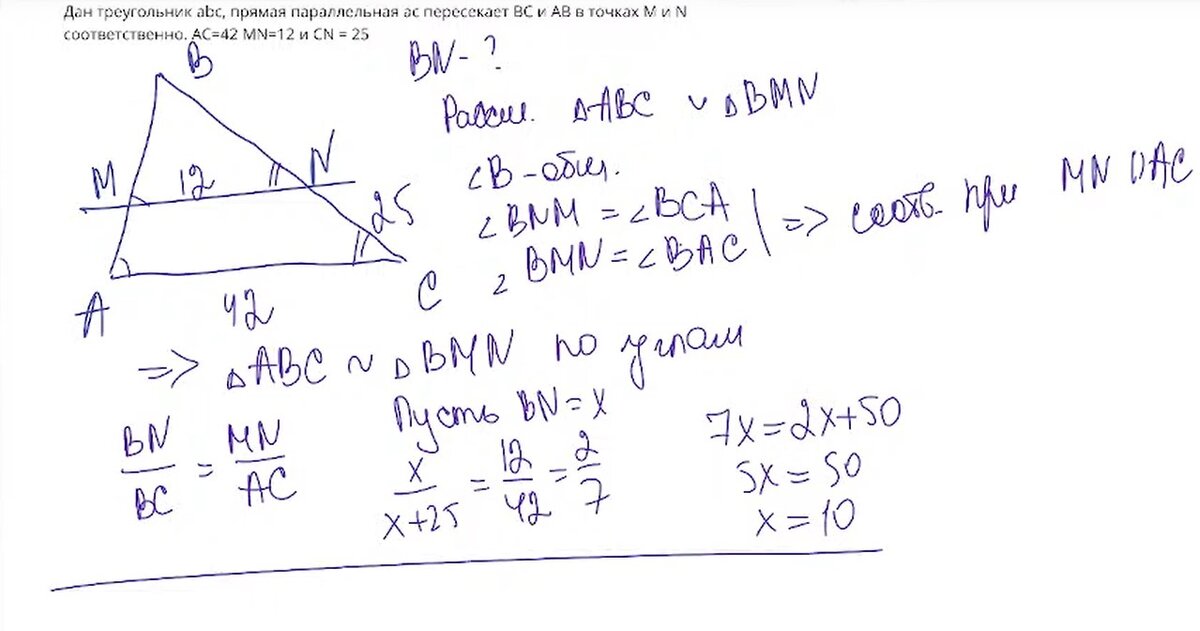 Дан треугольник abc, прямая параллельная ac пересекает BC и AB в точках M и N
соответственно. AC=42 MN=12 и CN = 25
B
BN - ?
Рассм. △ABC и △BMN
M 12 N
∠B - общ.
25
∠BNM = ∠BCA
∠BMN = ∠BAC | => соотв. при MN || AC
A 42 C
=> △ABC ~ △BMN по углам
Пусть BN = x
BN/BC = MN/AC
x/(x+25) = 12/42 = 2/7
7x = 2x+50
5x = 50
x = 10